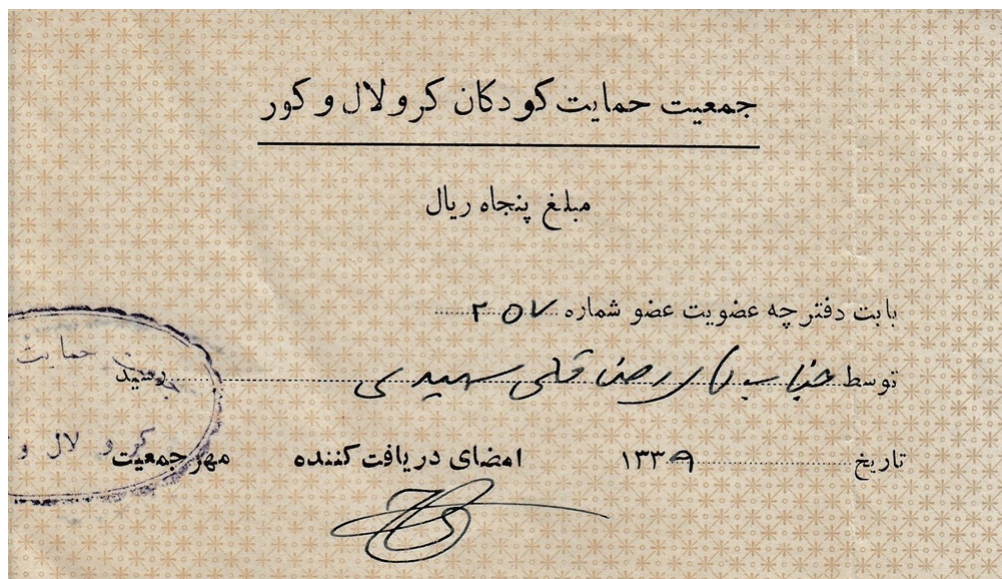 جمعیت حمایت کودکان کر و لال و کور
مبلغ پنجاه ریال
بابت دفترچه عضویت عضو شماره ۲۵۷
توسط جناب آقای رضا قلی رسید
تاریخ ۱۳۳۹ امضای دریافت کننده مهر جمعیت
حمایت
کر و لال و